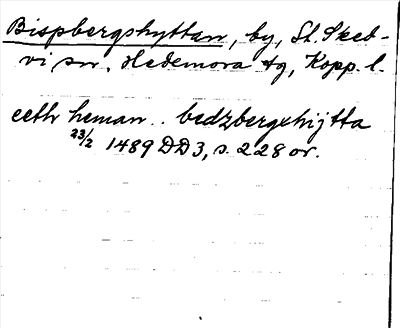 Bispbergshyttan, by, St. Sked-
vi sn, Hedemora tg, Kopp. l.
eeth heman .. bedzbergxhijtta
23/2 1489 DD3, s. 228 or.